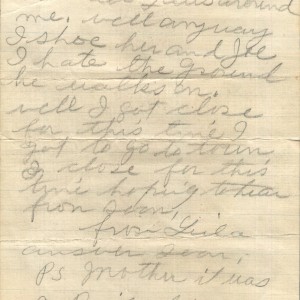 around
me. well anyway
I shoe her and Joe
I hate the ground
he walks on.
well I got close
for this time I
got to go to town
I close for this
time hoping to hear
from soon,
from Lula
answer soon,
Ps Mother it was